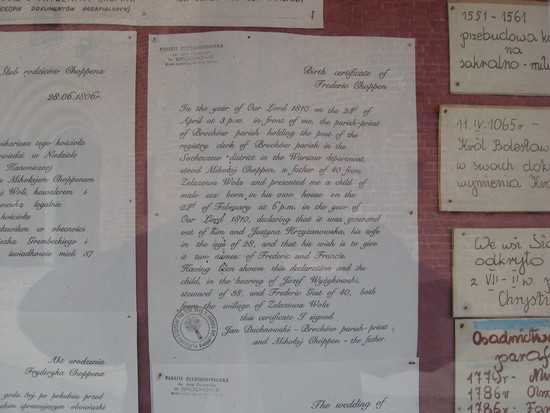 KOPIA DOKUMENTÓW PARAFIALNYCH)
Ślub rodziców Choppena
28.06.1806r.
wikariusz tego kościoła
w Niedziele
Kanonicznej
Mikołajem Choppenem
Woli, kawalerem i
legalnie
kościoła
w obecności
Grembeckiego i
świadkowie mieli 37
Akt urodzenia
Fryderyka Choppena
PARAFIA RZYMSKOKATOLICKA
w BROCHOWIE
Birth certificate of
Frederic Choppen
In the year of Our Lord 1810 on the 23rd of
April at 3 p.m. in front of me, the parish-priest
of Brochów parish holding the post of the
registry clerk of Brochów parish in the
Sochaczew district in the Warsaw department,
stood Mikołaj Choppen, a father of 40 from
Żelazowa Wola and presented me a child of
male sex born in his own house on the
22nd of February at 6 p.m. in the year of
Our Lord 1810, declaring that it was generated
out of him and Justyna Krzyżanowska, his wife
in the age of 28, and that his wish is to give
it two names: of Frederic and Francis.
Having been shown this declaration and the
child, in the hearing of Józef Wyrzykowski,
steward of 38, and Frederic Gest of 40, both
from the willage of Żelazowa Wola
this certificate I signed
Jan Duchnowski - Brochów parish-priest
and Mikołaj Choppen - the father.
PARAFIA RZYMSKOKATOLICKA
w BROCHOWIE
The wedding of
1551 - 1561
przebudowa
na
sakralno-
11.IV.1065r -
Król Bolesław
w swoich
wymienia
We wsi
odkryto
z VII -
Chrystu
Osadnictwo
paraf
1779r-
1786r
1786r